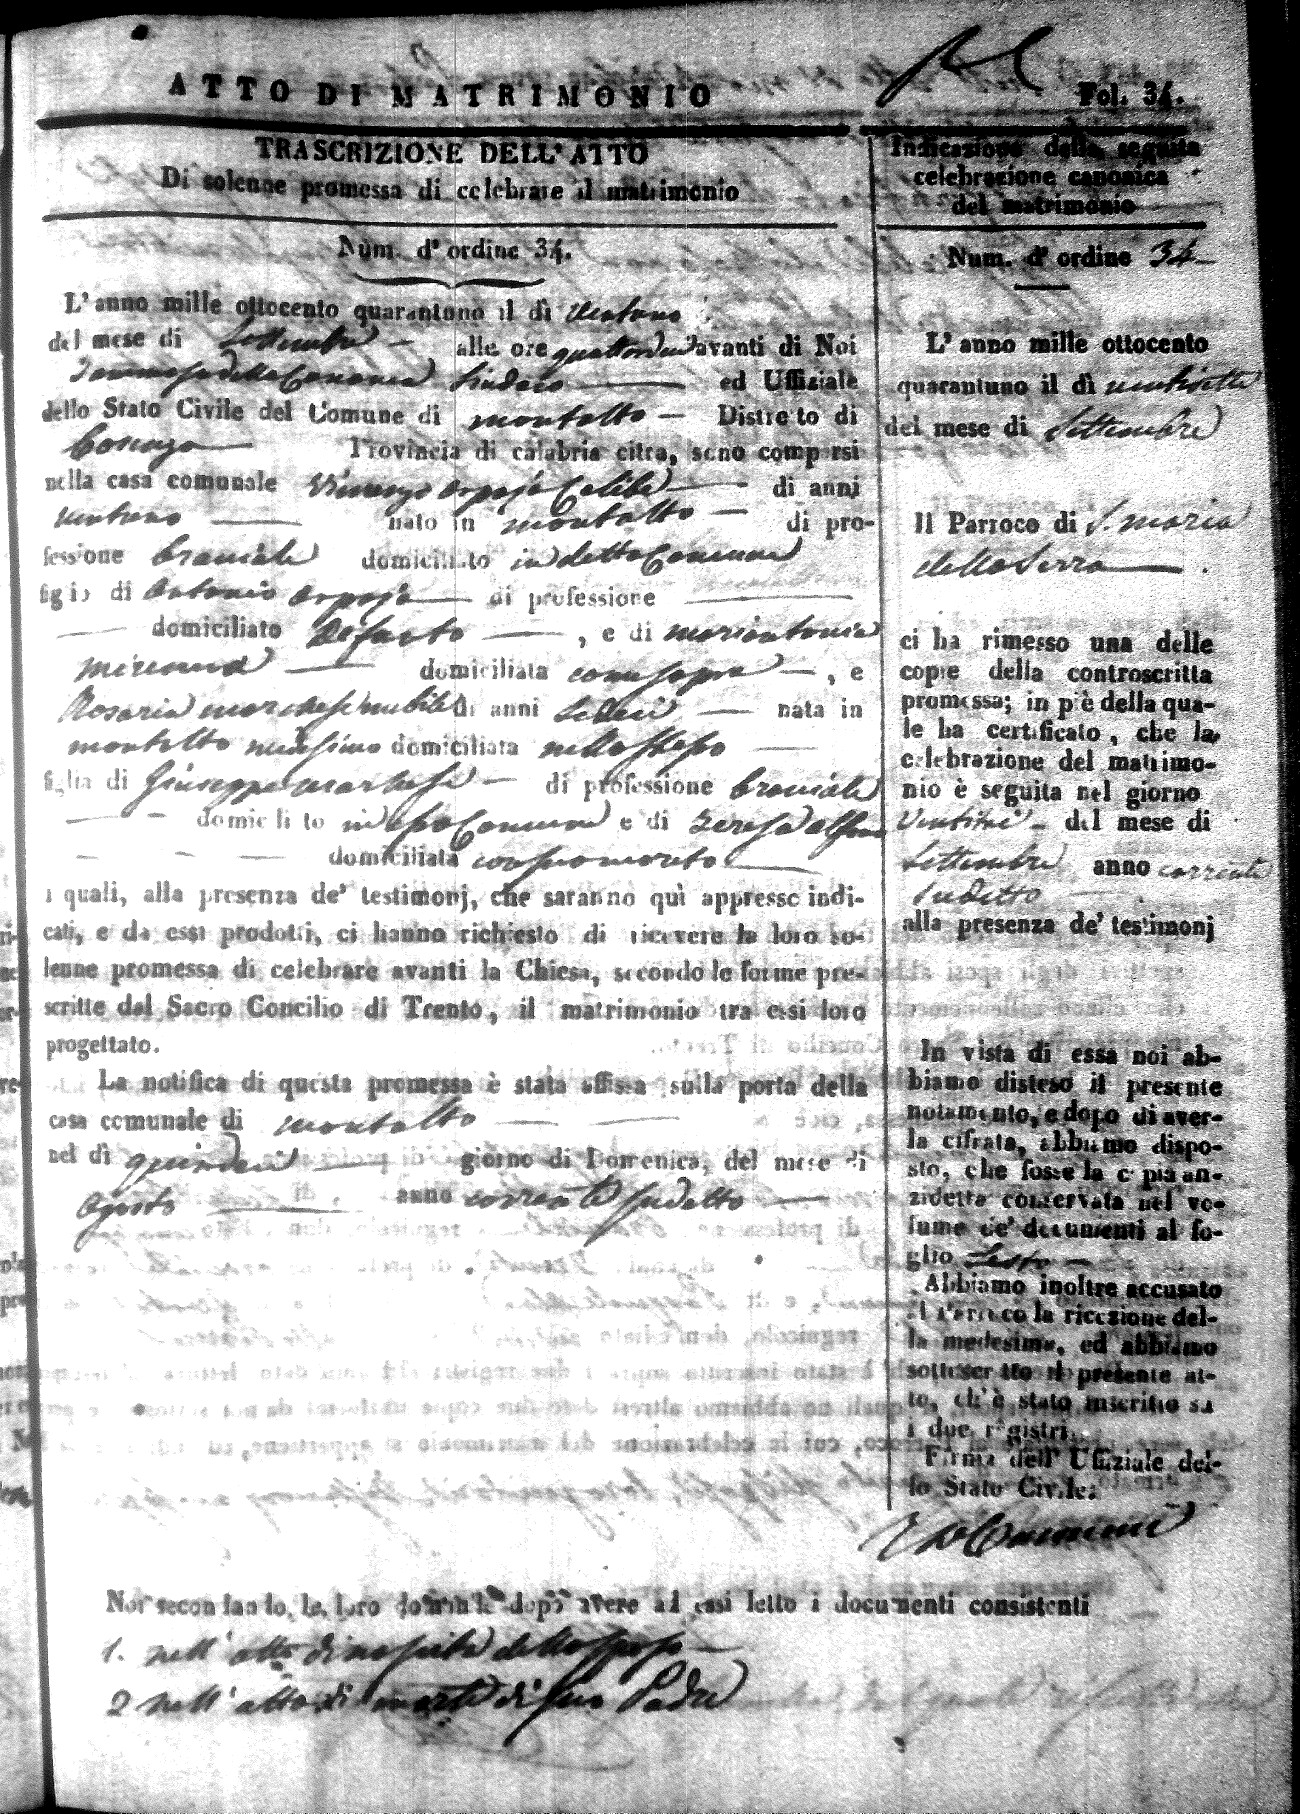 ATTO DI MATRIMONIO
Fol. 34.
TRASCRIZIONE DELL' ATTO
Di solenne promessa di celebrare il matrimonio
Num. d' ordine 34.
L' anno mille ottocento quarantuno il dì ventuno
del mese di Settembre alle ore quattordici avanti di Noi
Tommaso della Sindaco ed Uffiziale
dello Stato Civile del Comune di montalto Distretto di
Cosenza Provincia di calabria citra, sono comparsi
nella casa comunale Vincenzo Arpaja Celibe di anni
ventuno nato in montalto di pro-
fessione bracciale domiciliato in detto Comune
figlio di Antonio Arpaja di professione
domiciliato Defunto, e di mariantonia
domiciliata come sopra, e
Rosaria marchese nubile di anni Sedeci nata in
montalto medesimo domiciliata nello stesso
figlia di Giuseppe marchese di professione bracciale
domiciliato in esso Comune e di Teresa
domiciliata con suo marito
i quali, alla presenza de' testimonj, che saranno quì appresso indi-
cati, e da essi prodotti, ci hanno richiesto di ricevere la loro so-
lenne promessa di celebrare avanti la Chiesa, secondo le forme pre-
scritte dal Sacro Concilio di Trento, il matrimonio tra essi loro
progettato.
La notifica di questa promessa è stata affissa sulla porta della
casa comunale di montalto
nel dì quindeci giorno di Domenica, del mese di
Agosto anno corrente sudetto
Indicazione della seguita
celebrazione canonica
del matrimonio
Num. d' ordine 34
L' anno mille ottocento
quarantuno il dì ventisette
del mese di Settembre
Il Parroco di S. maria
della Serra
ci ha rimesso una delle
copie della controscritta
promessa; in piè della qua-
le ha certificato, che la
celebrazione del matrimo-
nio è seguita nel giorno
del mese di
Settembre anno corrente
sudetto
alla presenza de' testimonj
In vista di essa noi ab-
biamo disteso il presente
notamento, e dopo di aver-
la cifrata, abbiamo dispo-
sto, che fosse la copia an-
zidetta conservata nel vo-
lume de' documenti al fo-
glio Sesto
Abbiamo inoltre accusato
al Parroco la ricezione del-
la medesima, ed abbiamo
sottoscritto il presente at-
to, ch' è stato inscritto su
i due registri.
Firma dell' Uffiziale del-
lo Stato Civile:
Noi secondando le loro domande dopo avere ad essi letto i documenti consistenti
1. nell' atto di nascita dello sposo
2 nell' atto di morte di suo Padre